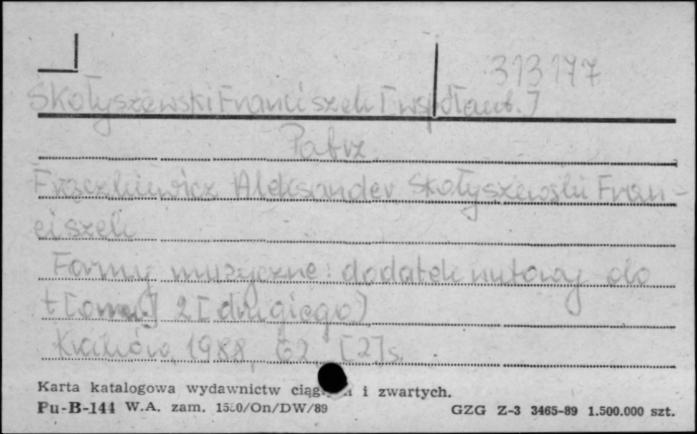 313177
Skołyszewski Franciszek [współaut.]
Patrz
Frączkiewicz Aleksander, Skołyszewski Fran-
ciszek
Formy muzyczne : dodatek nutowy do
t[omu] 2 [drugiego]
Kraków, 1988, 62, [2] s.
Karta katalogowa wydawnictw i zwartych.
Pu-B-144 W.A. zam. 1550/On/DW/89 GZG Z-3 3465-89 1.500.000 szt.